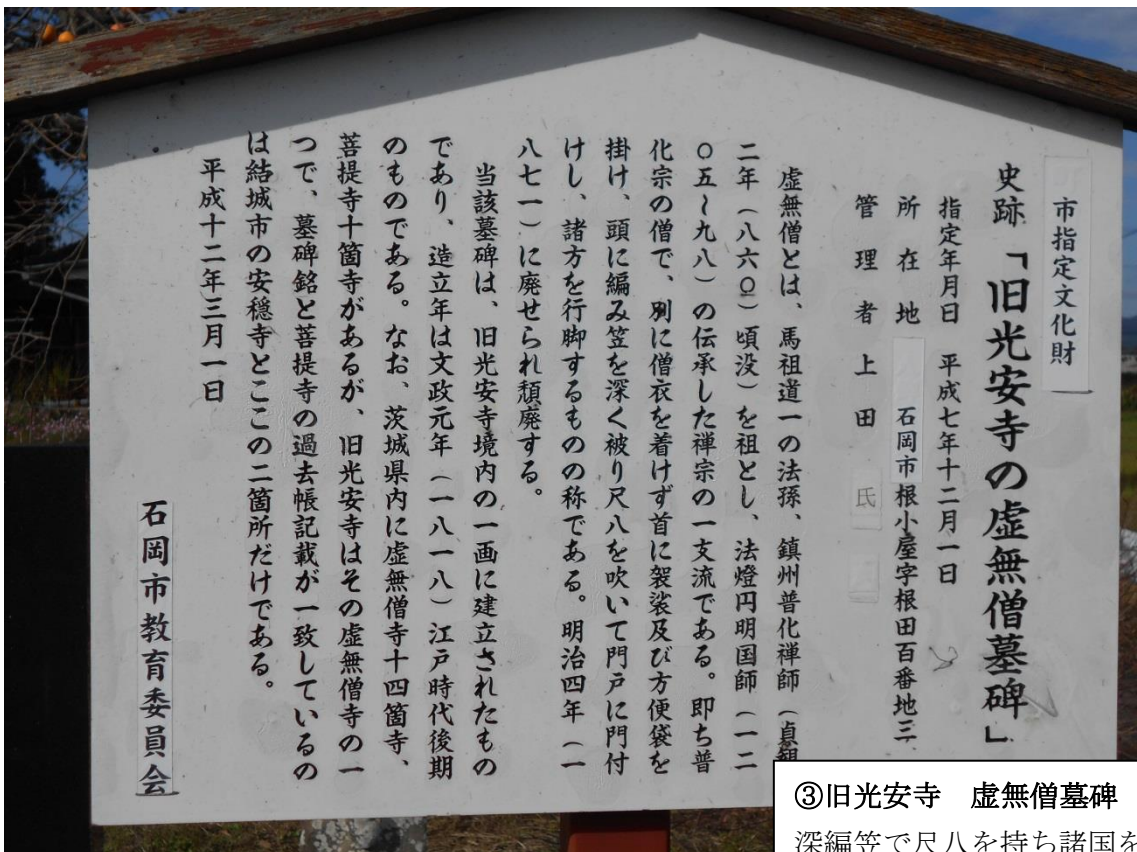 市指定文化財
史跡「旧光安寺の虚無僧墓碑」
指定年月日 平成七年十二月一日
所在地 石岡市根小屋字根田百番地三
管理者 上田 氏
虚無僧とは、馬祖道一の法孫、鎮州普化禅師(真観
二年(八六〇)頃没)を祖とし、法燈円明国師(一二
〇五~九八)の伝承した禅宗の一支流である。即ち普
化宗の僧で、別に僧衣を着けず首に袈裟及び方便袋を
掛け、頭に編み笠を深く被り尺八を吹いて門戸に門付
けし、諸方を行脚するものの称である。明治四年(一
八七一)に廃せられ頽廃する。
当該墓碑は、旧光安寺境内の一画に建立されたもの
であり、造立年は文政元年(一八一八)江戸時代後期
のものである。なお、茨城県内に虚無僧寺十四箇寺、
菩提寺十箇寺があるが、旧光安寺はその虚無僧寺の一
つで、墓碑銘と菩提寺の過去帳記載が一致しているの
は結城市の安穏寺とここの二箇所だけである。
平成十二年三月一日
石岡市教育委員会
③旧光安寺 虚無僧墓碑
深編笠で尺八を持ち諸国を